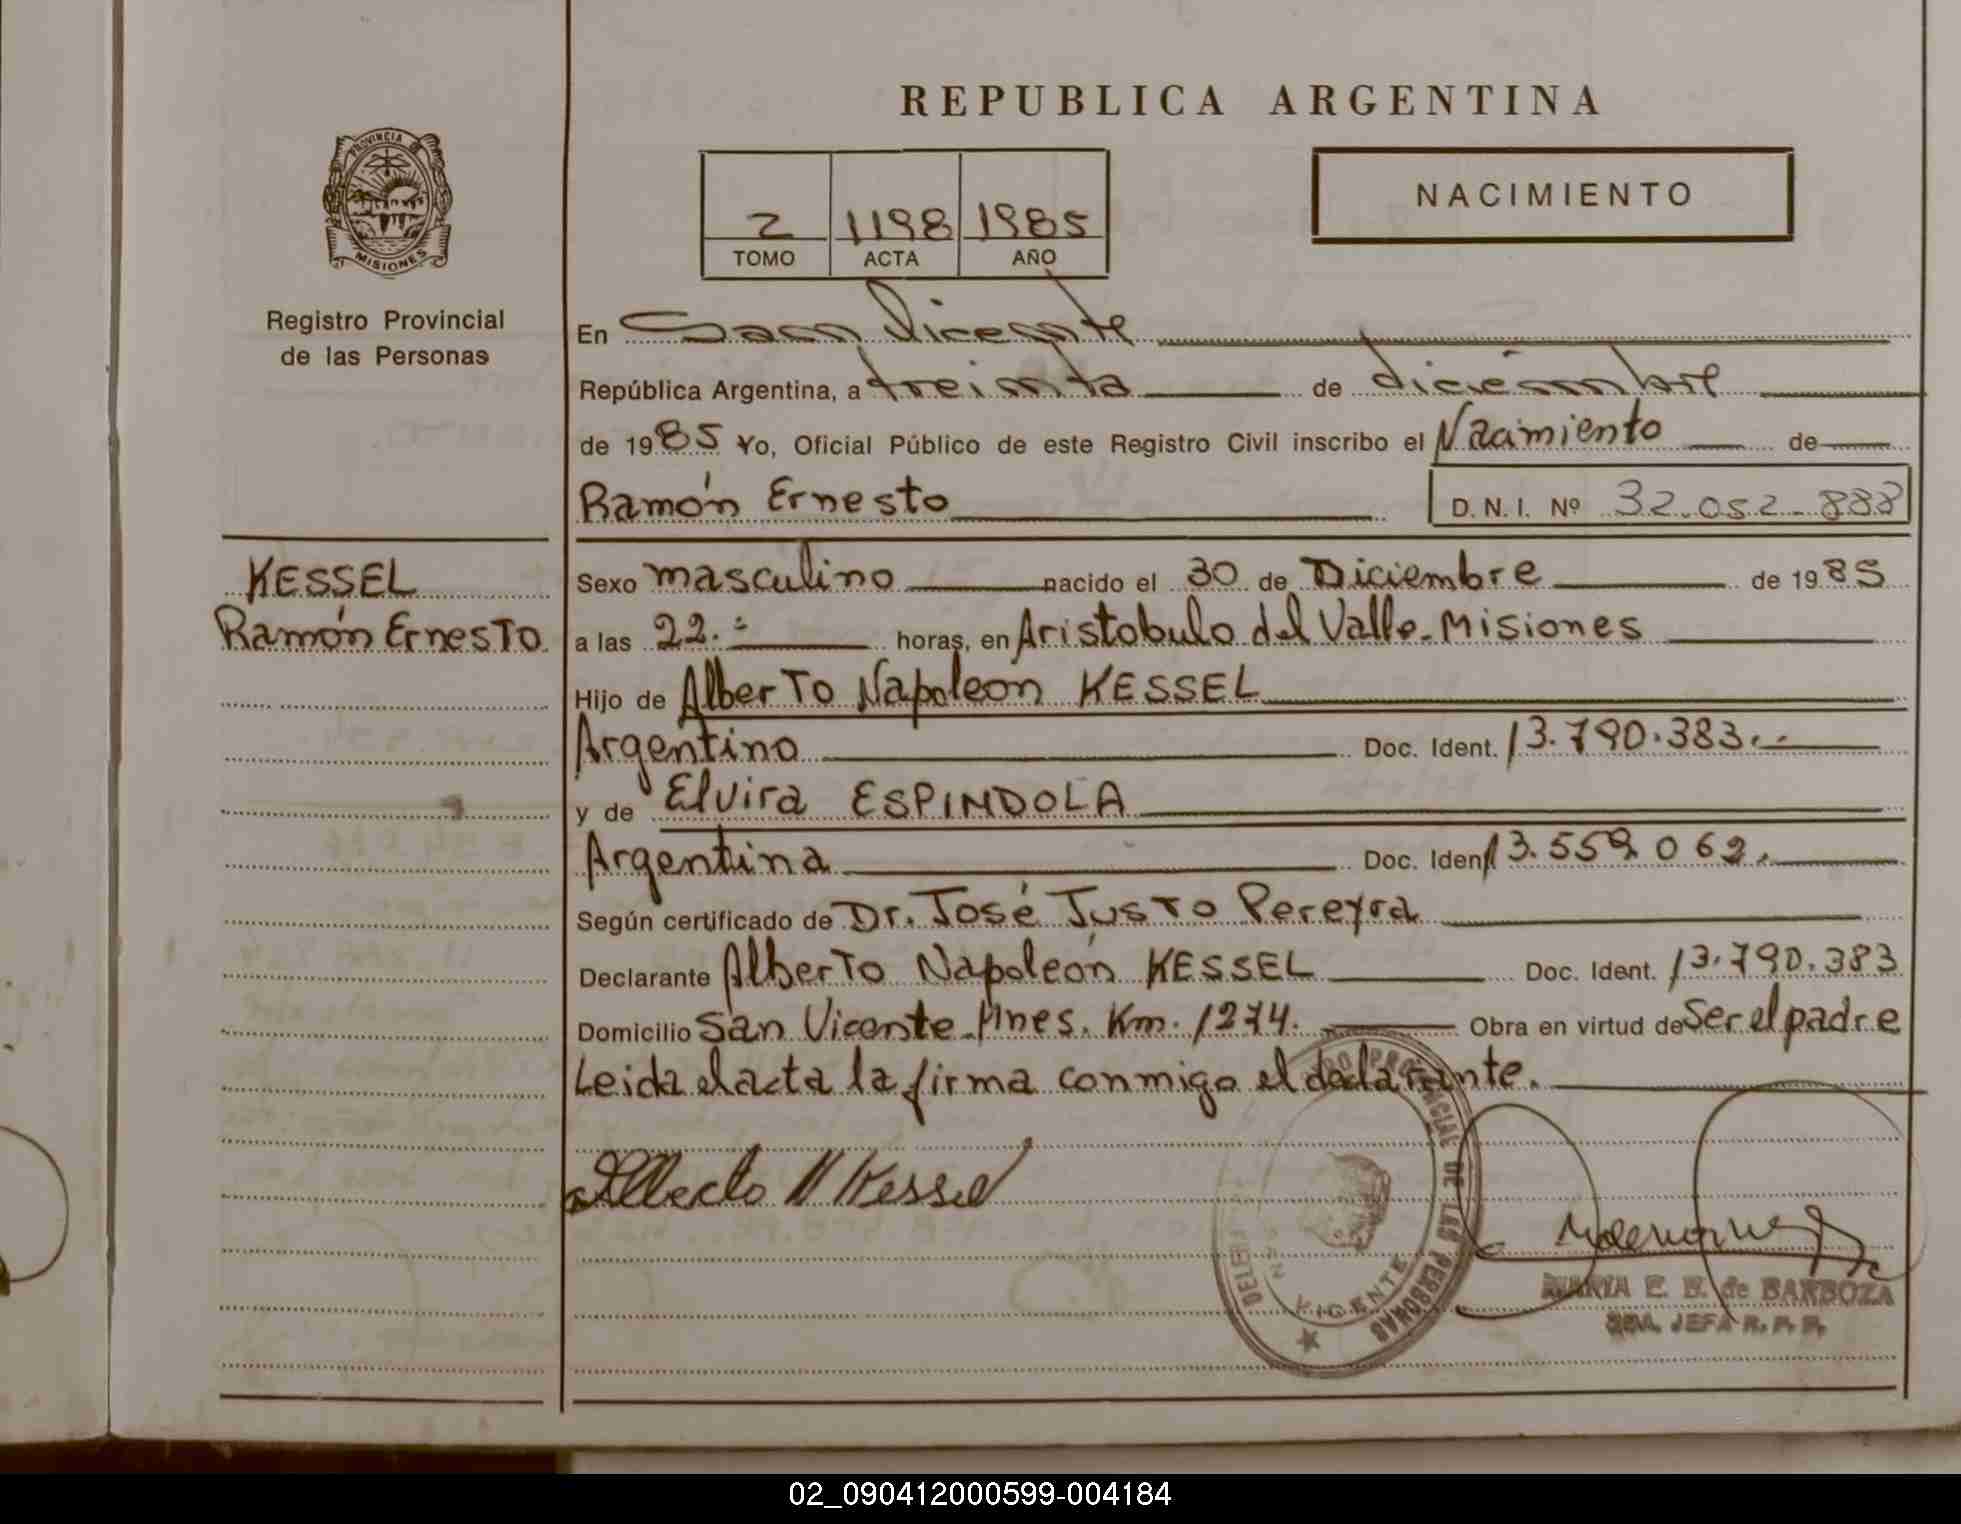 REPUBLICA ARGENTINA
PROVINCIA DE
MISIONES
Registro Provincial
de las Personas
2 1198 1985
TOMO ACTA AÑO
NACIMIENTO
En San Vicente
República Argentina, a treinta de diciembre
de 1985 Yo, Oficial Público de este Registro Civil inscribo el Nacimiento de
Ramón Ernesto
D. N. I. Nº 32.052.888
KESSEL
Ramón Ernesto
Sexo masculino nacido el 30 de Diciembre de 1985
a las 22.- horas, en Aristobulo del Valle-Misiones
Hijo de Alberto Napoleon KESSEL
Argentino Doc. Ident. 13.790.383.-
y de Elvira ESPINDOLA
Argentina Doc. Iden 13.559.062.
Según certificado de Dr. José Justo Pereyra
Declarante Alberto Napoleón KESSEL Doc. Ident. 13.790.383
Domicilio San Vicente-Mnes. Km. 1274. Obra en virtud de Ser el padre
Leida el acta la firma conmigo el declarante.
Alberto N Kessel
PROVINCIAL DE LAS PERSONAS
SAN VICENTE
MARIA E. B. de BARBOZA
JEFA R. P. P.
02_090412000599-004184